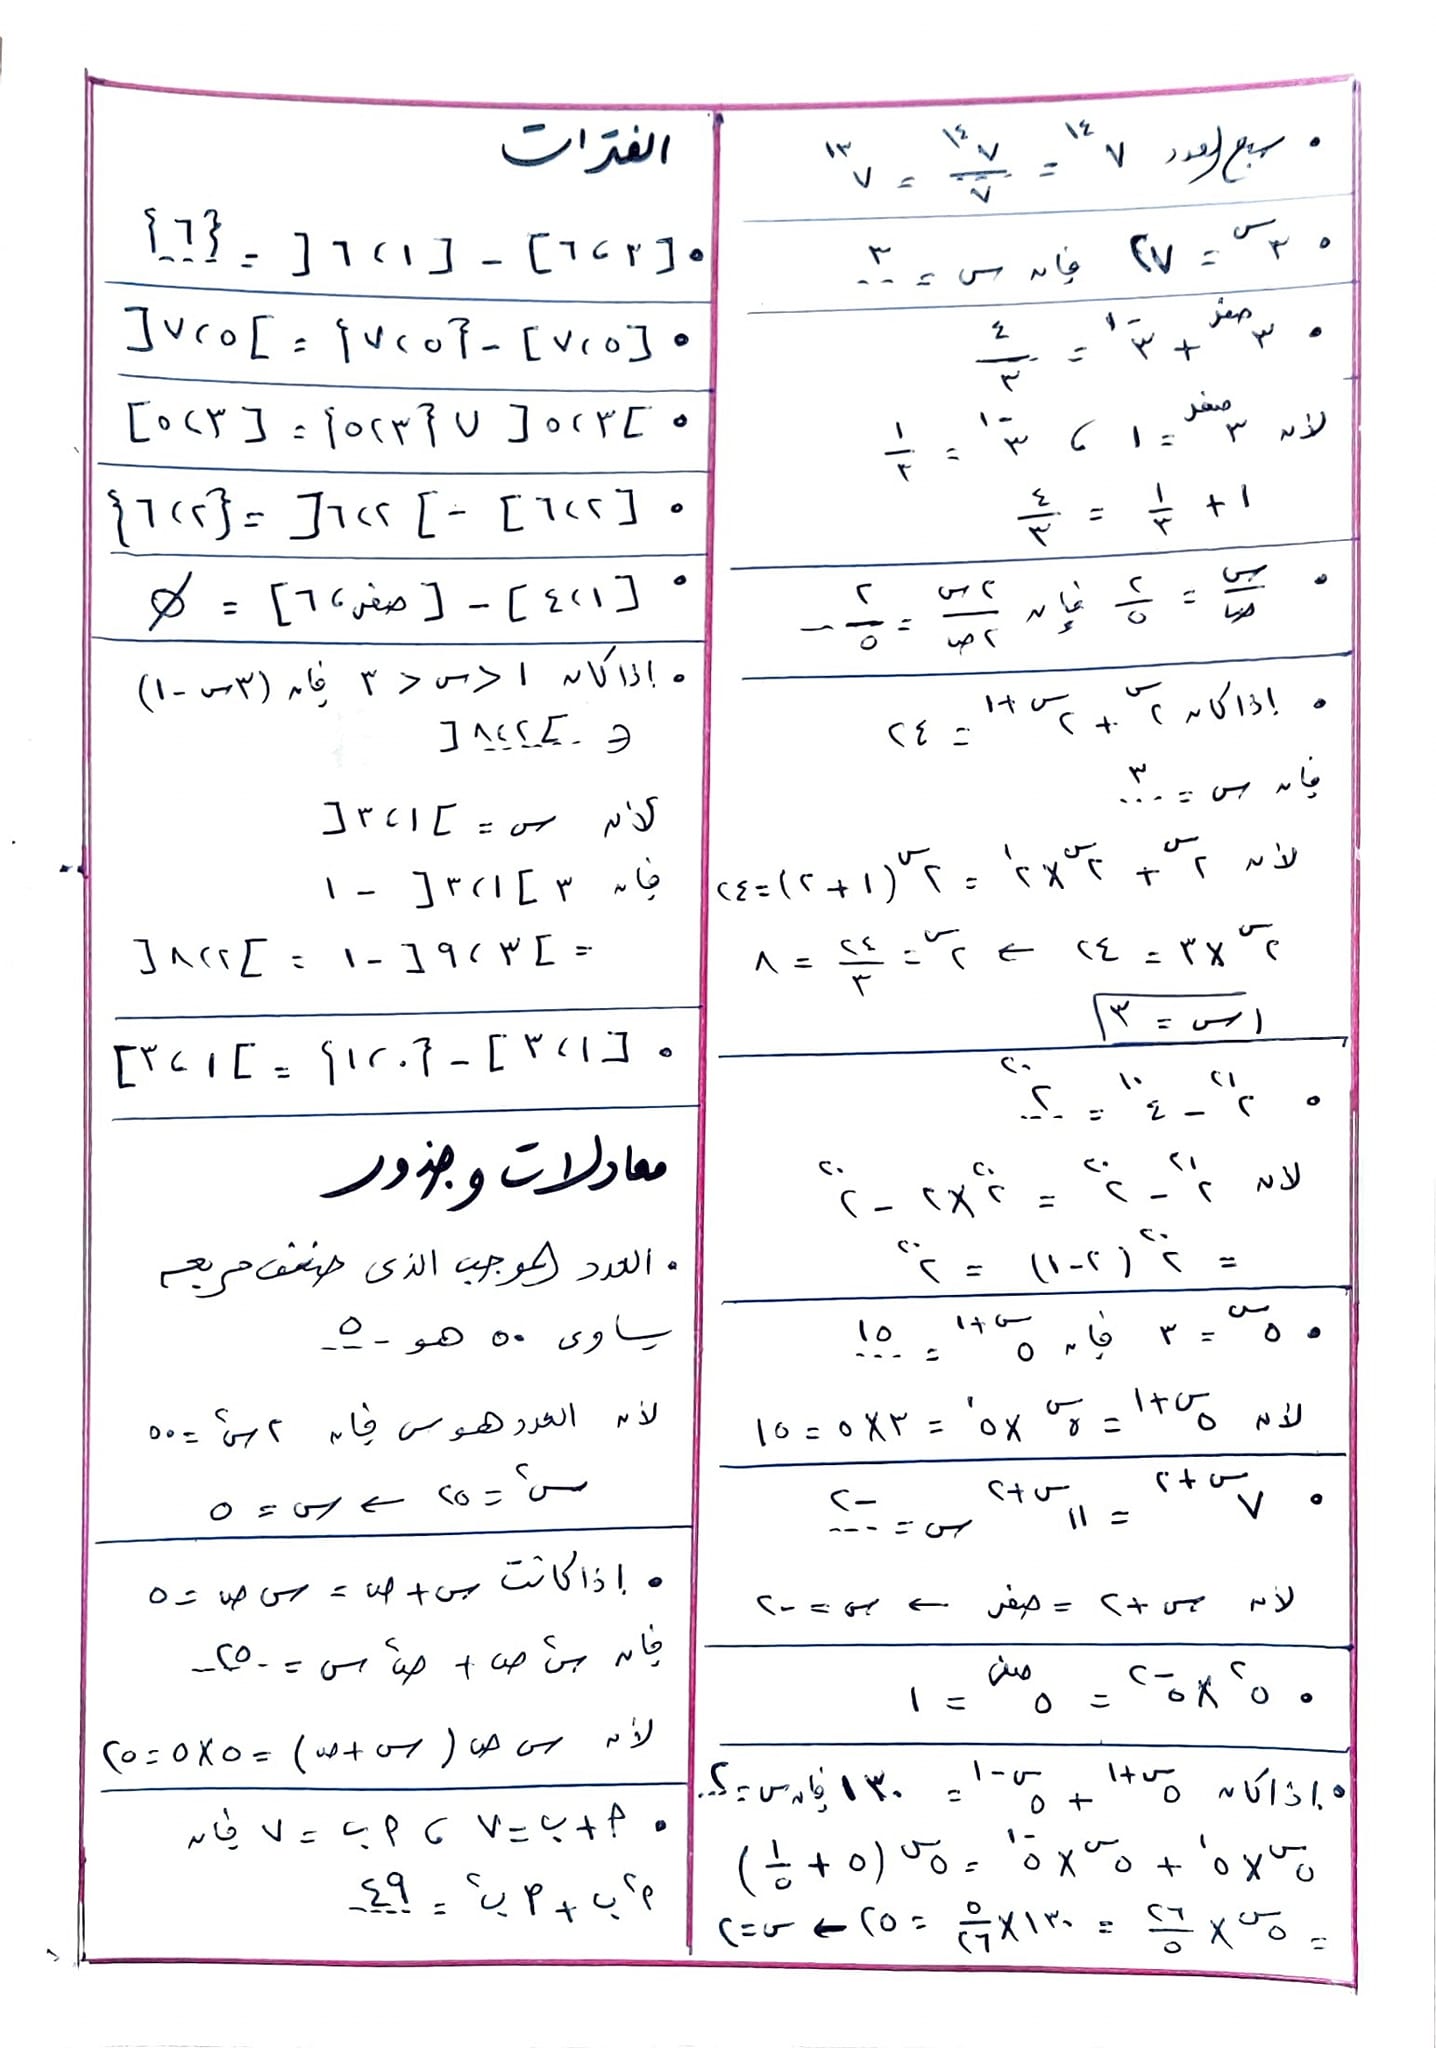 • سبع العدد ٧^١٤ = ٧^١٤/٧ = ٧^١٣
• ٣^س = ٢٧ فإن س = ٣
• ٣^صفر + ٣^-١ = ٤/٣
لأن ٣^صفر = ١ ، ٣^-١ = ١/٣
١ + ١/٣ = ٤/٣
• س/ص = ٢/٥ فإن ٢س/٢ص = ٢/٥
• إذا كان ٢^س + ٢^(س+١) = ٢٤
فإن س = ٣
لأن ٢^س + ٢^س × ٢^١ = ٢^س (١ + ٢) = ٢٤
٢^س × ٣ = ٢٤ ← ٢^س = ٢٤/٣ = ٨
س = ٣
• ٢^٢١ - ٤^١٠ = ٢^٢٠
لأن ٢^٢١ - ٢^٢٠ = ٢^٢٠ × ٢ - ٢^٢٠
= ٢^٢٠ (٢-١) = ٢^٢٠
• ٥^س = ٣ فإن ٥^(س+١) = ١٥
لأن ٥^(س+١) = ٥^س × ٥^١ = ٣ × ٥ = ١٥
• ٧^(س+٢) = ١١^(س+٢) س = -٢
لأن س + ٢ = صفر ← س = -٢
• ٥^٢ × ٥^-٢ = ٥^صفر = ١
• إذا كان ٥^(س+١) + ٥^(س-١) = ١٣٠ فإن س = ٢
٥^س × ٥^١ + ٥^س × ٥^-١ = ٥^س (٥ + ١/٥)
= ٥^س × ٢٦/٥ = ١٣٠ × ٥/٢٦ = ٢٥ ← س = ٢
الفترات
• [٣ ، ٦] - [١ ، ٦[ = {٦}
• [٥ ، ٧] - {٥ ، ٧} = ]٥ ، ٧[
• ]٣ ، ٥[ ∪ {٣ ، ٥} = [٣ ، ٥]
• [٢ ، ٦] - ]٢ ، ٦[ = {٢ ، ٦}
• [١ ، ٤] - [صفر ، ٦] = Ø
• إذا كان ١ < س < ٣ فإن (٣س - ١)
∈ ]٢ ، ٨[
لأن س = ]١ ، ٣[
فإن ٣ ]١ ، ٣[ - ١
= ]٣ ، ٩[ - ١ = ]٢ ، ٨[
• [١ ، ٣] - {٠ ، ١} = ]١ ، ٣]
معادلات وجذور
• العدد الموجب الذى ضعف مربعه
يساوى ٥٠ هو ٥
لأن العدد هو س فإن ٢س^٢ = ٥٠
س^٢ = ٢٥ ← س = ٥
• إذا كانت س + ص = س ص = ٥
فإن س^٢ ص + ص^٢ س = ٢٥
لأن س ص (س + ص) = ٥ × ٥ = ٢٥
• م + ب = ٧ ، م ب = ٧ فإن
م^٢ ب + م ب^٢ = ٤٩